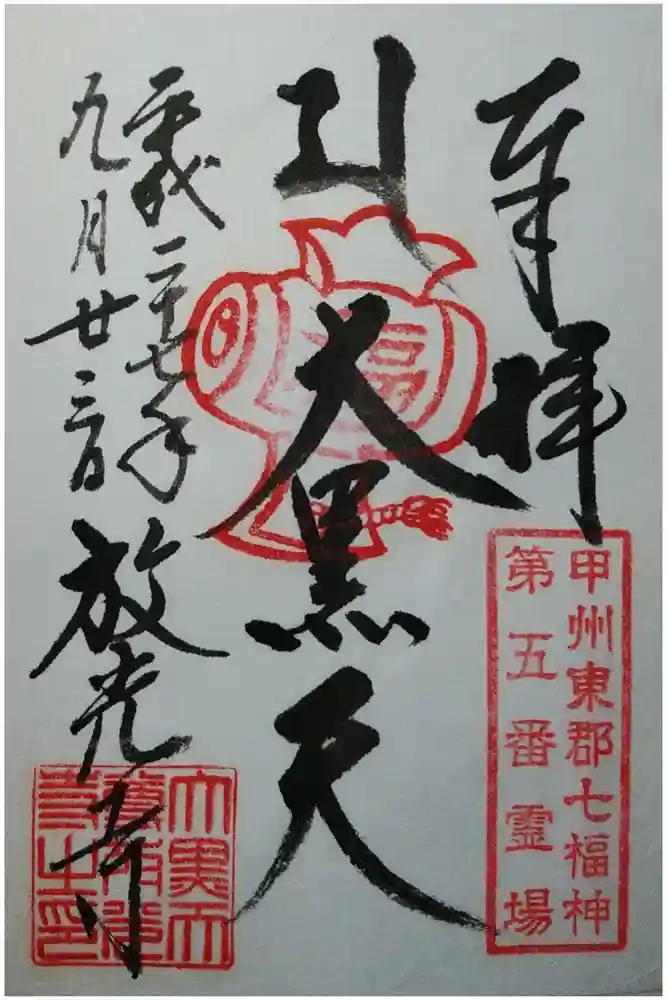 奉拝
甲州東郡七福神
第五番霊場
大黒天
福
平成二十七年
九月廿三日
放光寺